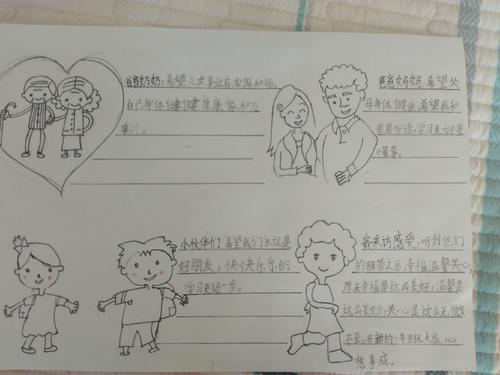 爷爷奶奶:希望儿女事业有成家庭和睦,
自己身体健健康康家和万
事兴。
爸爸妈妈:希望父
母身体健康,希望我和
弟弟听话,学习更好更
懂事。
小伙伴们:希望我们永远是
好朋友,快快乐乐的
学习更好一步。
我采访感受:听到他们
的回答之后,幸福温馨关心,
原来幸福是这么美好,温馨是
这么美妙,关心是这么无微
不至。在新的一年里祝大家心
想事成。